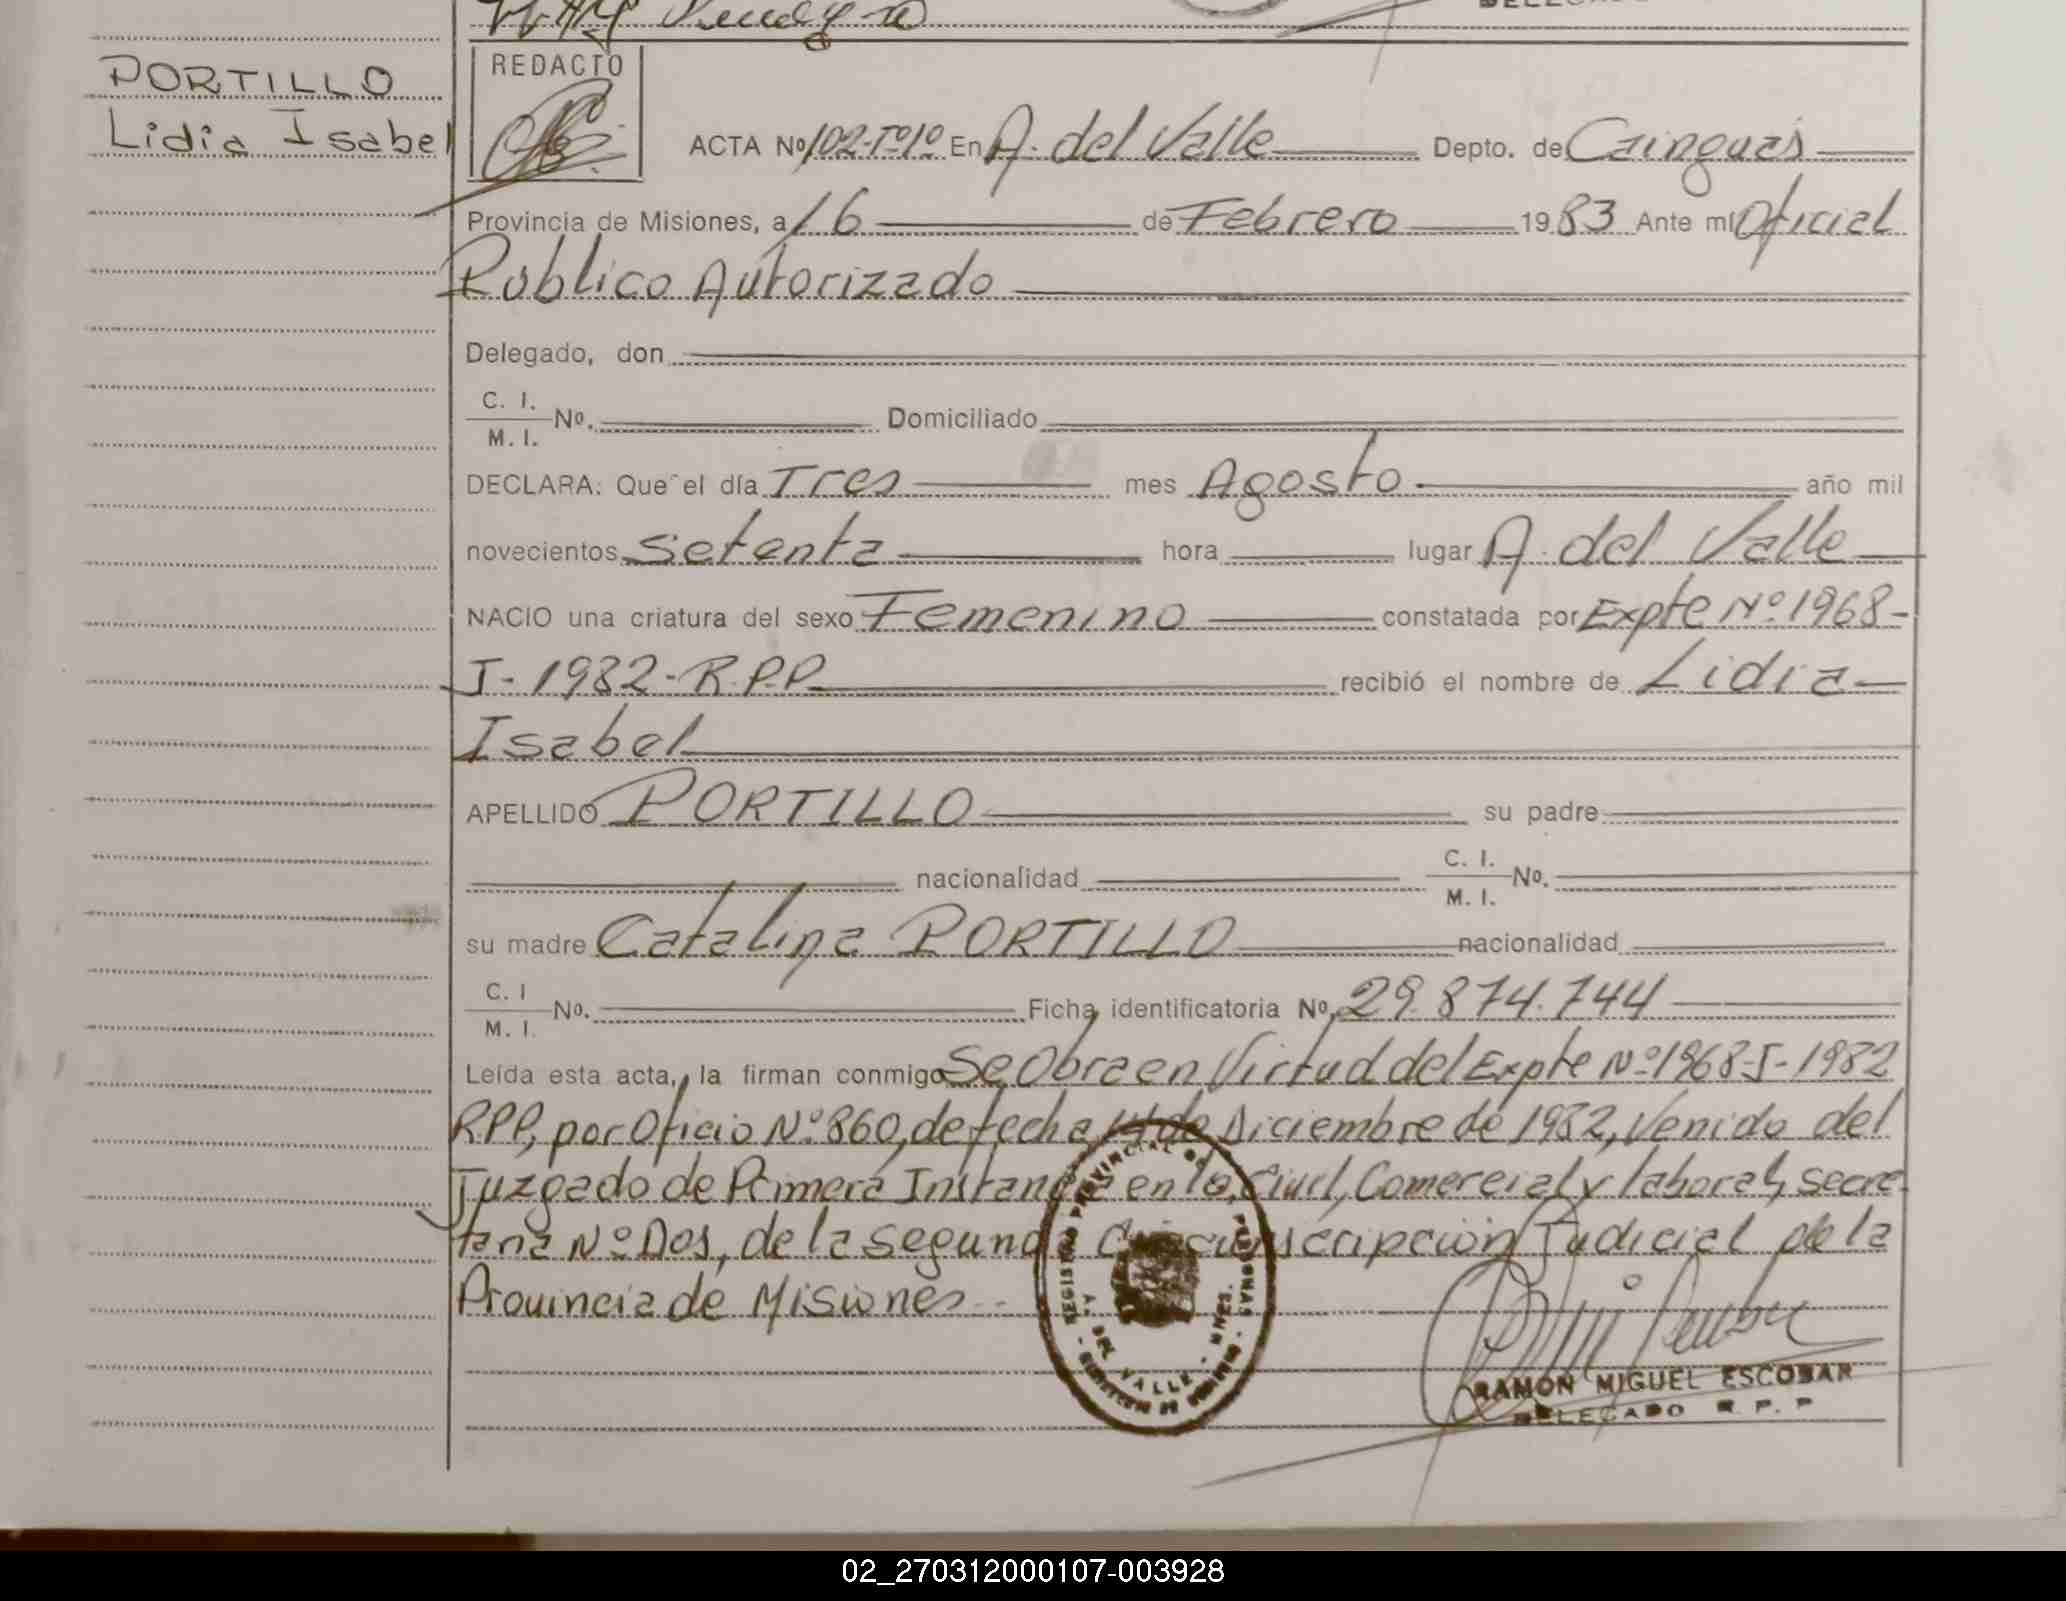 PORTILLO
Lidia Isabel
REDACTO
ACTA Nº 102-Tº1º En A. del Valle Depto. de Cainguás
Provincia de Misiones, a 16 de Febrero 1983 Ante mí Oficial
Público Autorizado
Delegado, don
C. I.
M. I. Nº. Domiciliado
DECLARA: Que el día Tres mes Agosto año mil
novecientos setenta hora lugar A. del Valle
NACIO una criatura del sexo Femenino constatada por Expte Nº 1968-
J-1982-R.P.P recibió el nombre de Lidia
Isabel
APELLIDO PORTILLO su padre
nacionalidad C. I.
M. I. Nº.
su madre Catalina PORTILLO nacionalidad
C. I
M. I. Nº. Ficha identificatoria Nº 29.874.744
Leída esta acta, la firman conmigo Se Obra en Virtud del Expte Nº 1968-J-1982
RPP, por Oficio Nº 860, de fecha de Diciembre de 1982, Venido del
Juzgado de Primera Instancia en lo Civil, Comercial y laboral, secre
taria Nº Dos, de la segunda Circunscripción Judicial de la
Provincia de Misiones
REGISTRO PROVINCIAL DE PERSONAS
A. DEL VALLE - MNES.
RAMON MIGUEL ESCOBAR
DELEGADO R. P. P
02_270312000107-003928